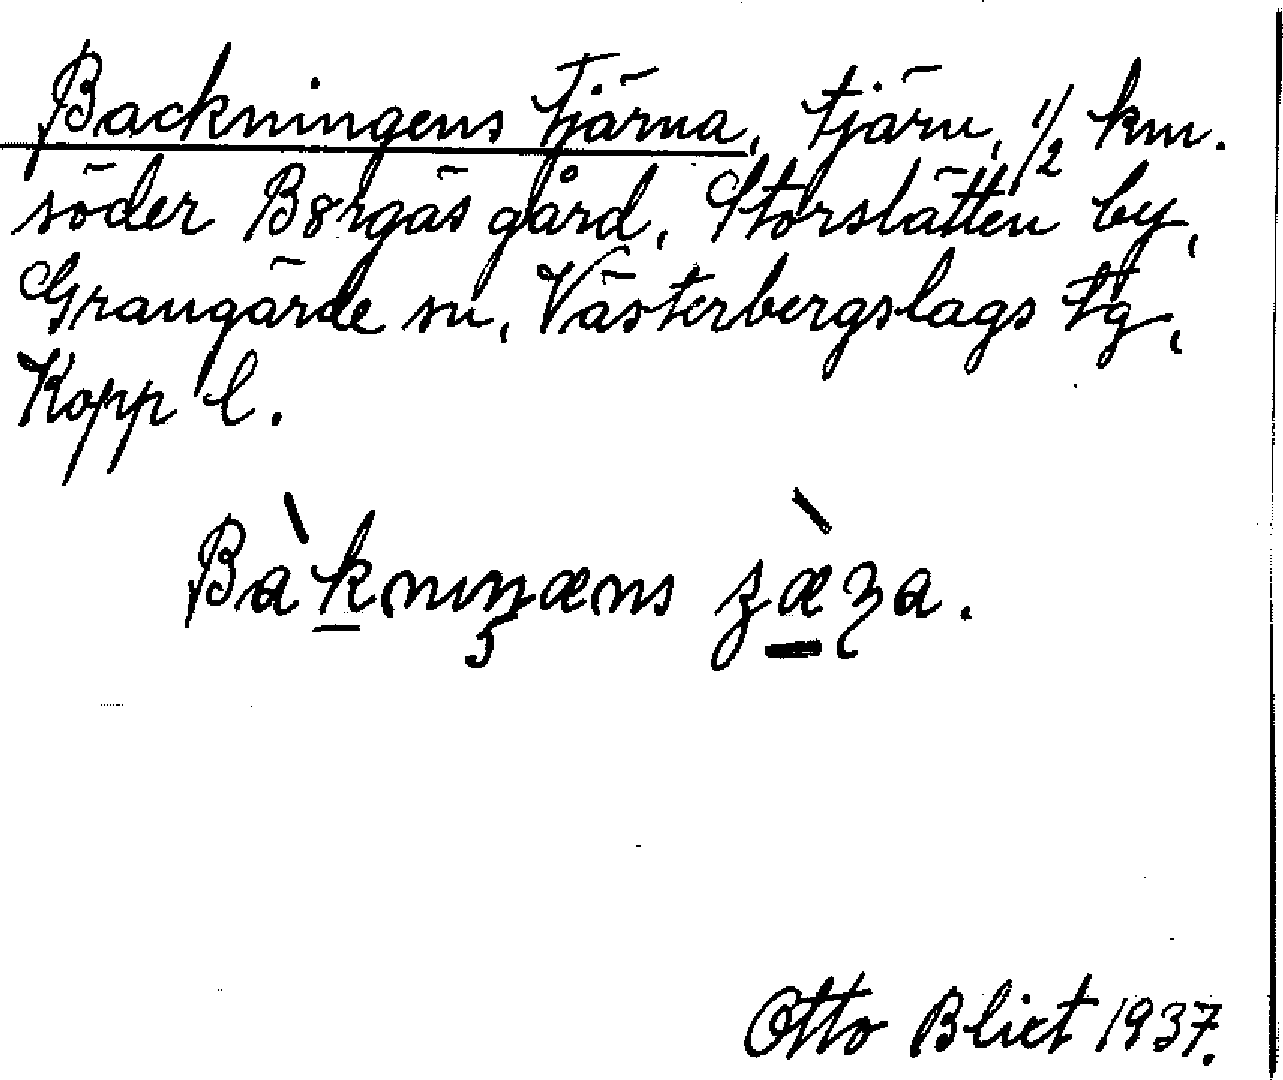 Backningens Tjärna, tjärn, 1/2 km.
söder Borgäs gård, Storslätten by,
Grangärde sn, Västerbergslags tg,
Kopp l.
Otto Blixt 1937.